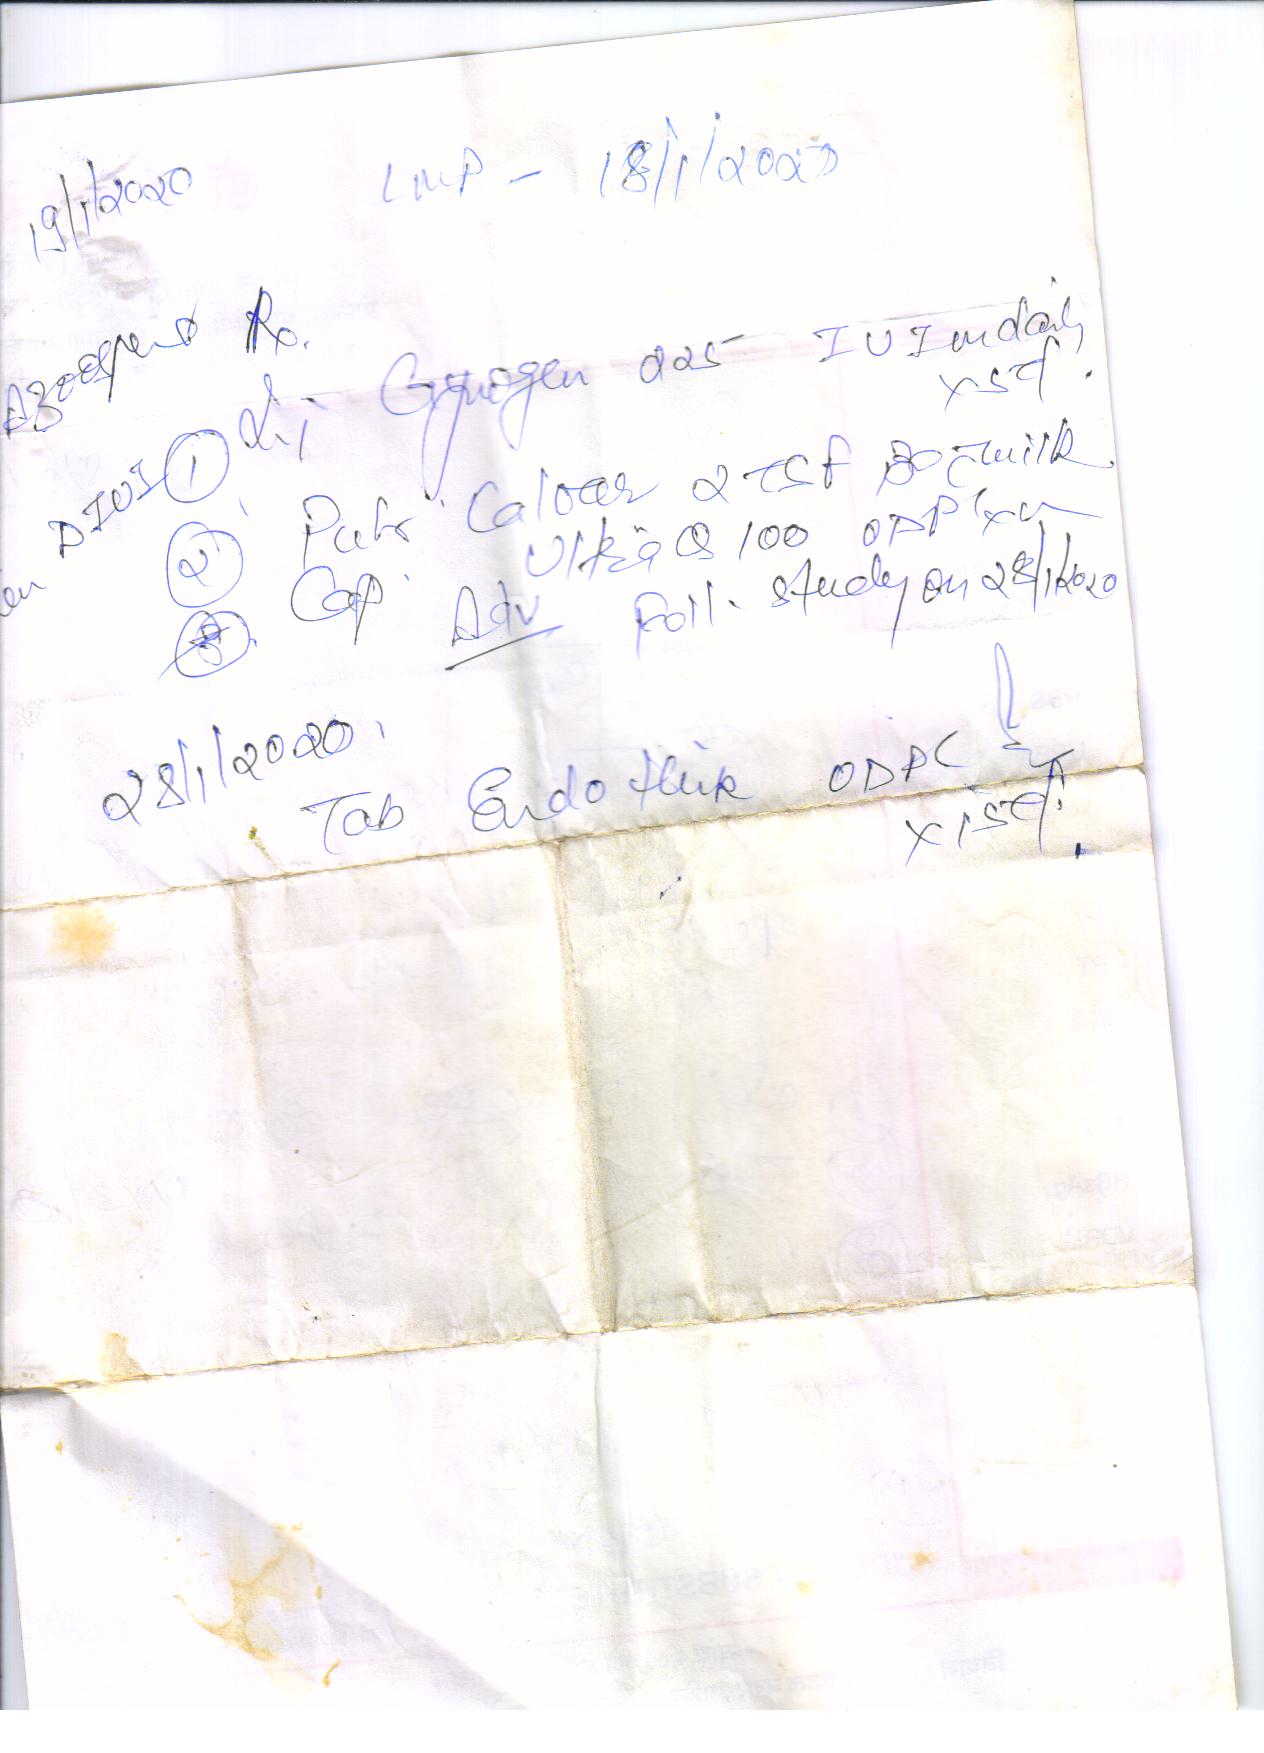 19/1/2020 LMP - 18/1/2020
Rx.
DIUI
① Inj Gynogen 225 IU Im daily
x 5 d.
② Pulv. Calvear 2 TSF BD c milk
③ Cap Ultra Q 100 ODPC x
Adv Foll. study on 28/1/2020
28/1/2020.
Tab Endo thik ODPC
x 15 d.